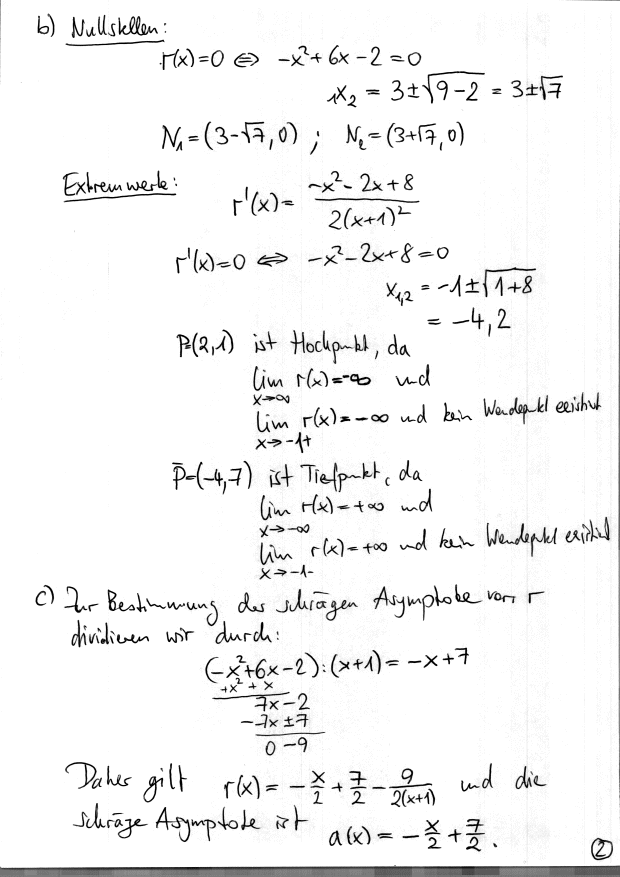 b) Nullstellen:
r(x)=0 ⇔ -x²+6x-2=0
₁x₂ = 3±√(9-2) = 3±√7
N₁=(3-√7,0) ; N₂=(3+√7,0)
Extremwerte: r'(x)= (-x²-2x+8)/(2(x+1)²)
r'(x)=0 ⇔ -x²-2x+8=0
x₁,₂ = -1±√(1+8)
= -4, 2
P=(2,1) ist Hochpunkt, da
lim r(x)=-∞ und
x→∞
lim r(x)=-∞ und kein Wendepunkt existiert
x→-1+
P̄=(-4,7) ist Tiefpunkt, da
lim r(x)=+∞ und
x→-∞
lim r(x)=+∞ und kein Wendepunkt existiert
x→-1-
c) Zur Bestimmung der schrägen Asymptote von r
dividieren wir durch:
(-x²+6x-2):(x+1)=-x+7
+x²+x
7x-2
-7x±7
0-9
Daher gilt r(x)=-x/2+7/2-9/(2(x+1)) und die
schräge Asymptote ist a(x)=-x/2+7/2.
②